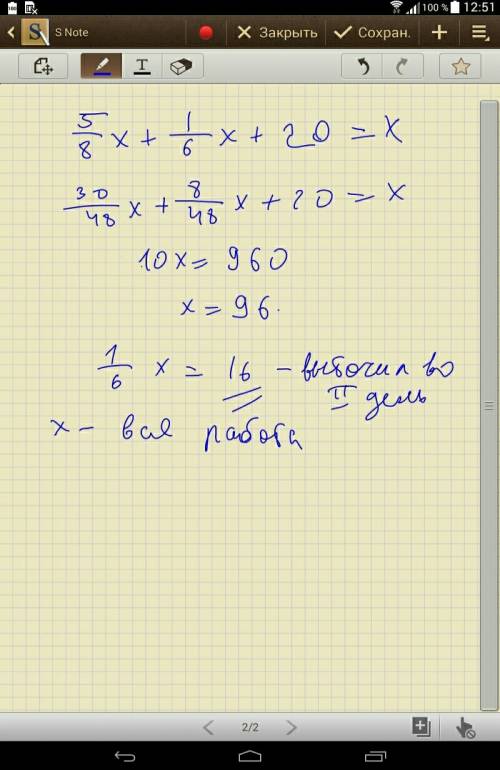 100 % 12:51
S Note
Закрыть
Сохран.
T
5/8 x + 1/6 x + 20 = x
30/48 x + 8/48 x + 20 = x
10x = 960
x = 96.
1/6 x = 16 – выточил во
II день
x – вся работа
2/2